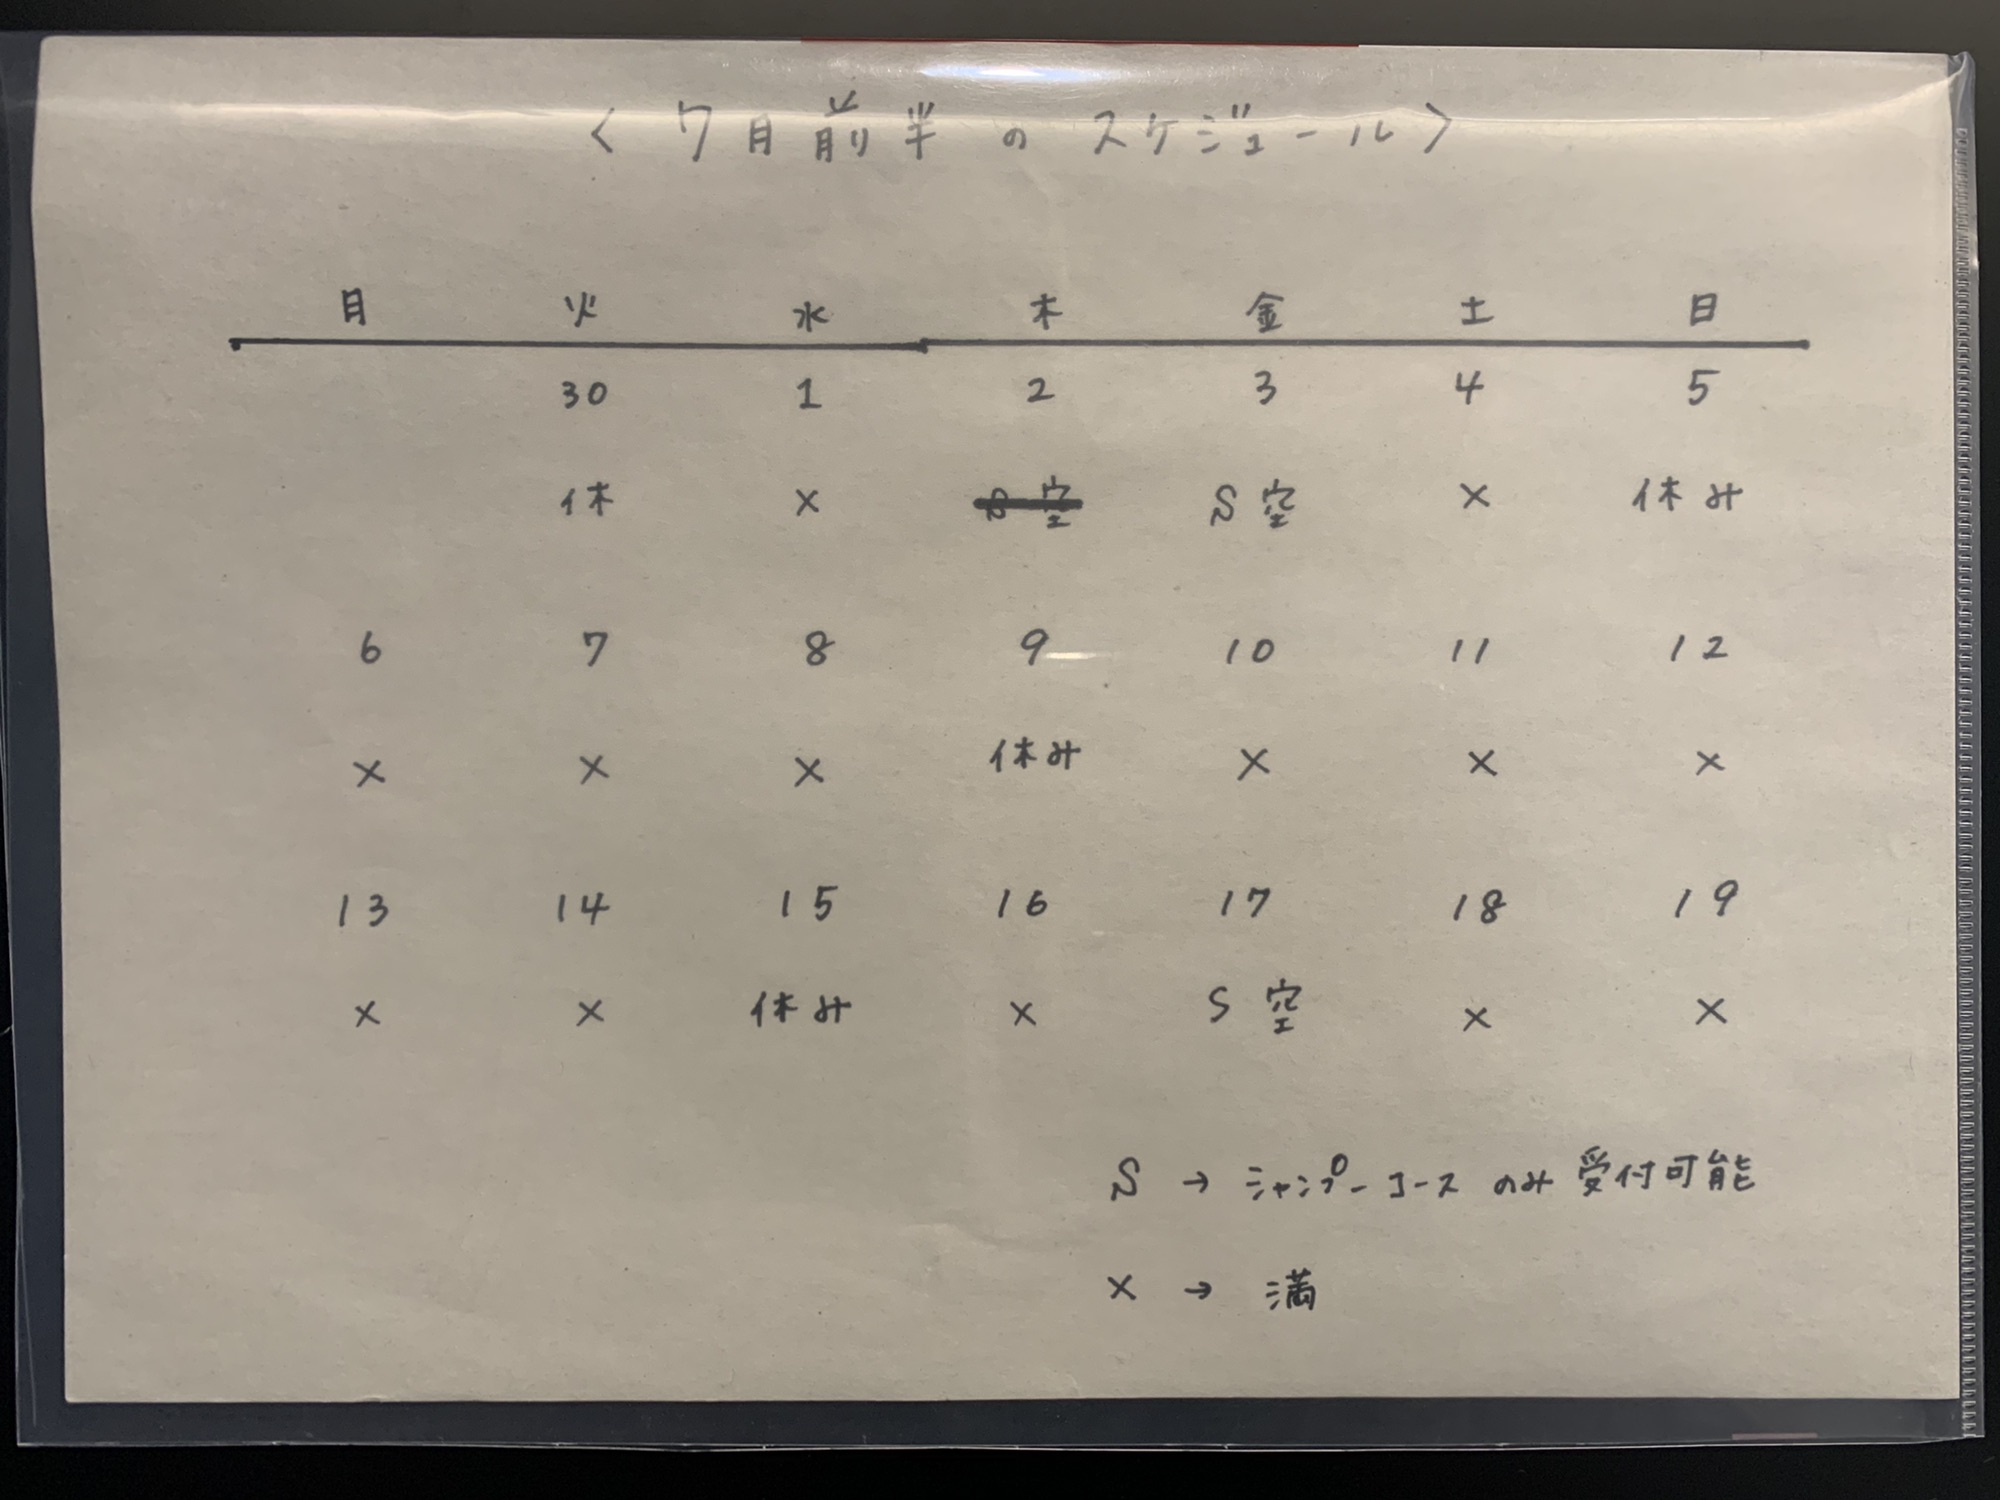 〈7月前半のスケジュール〉
月 火 水 木 金 土 日
30 1 2 3 4 5
休 × S空 S空 × 休み
6 7 8 9 10 11 12
× × × 休み × × ×
13 14 15 16 17 18 19
× × 休み × S空 × ×
S → シャンプーコースのみ受付可能
× → 満